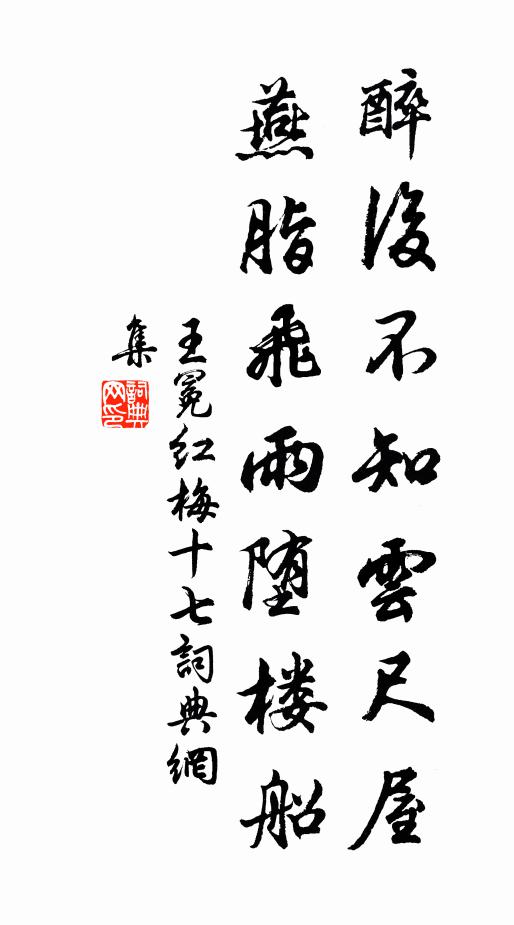 醉後不知雲尺屋
燕脂飛雨堕楼船
王冕红梅十七詞典網
集
詞典网印